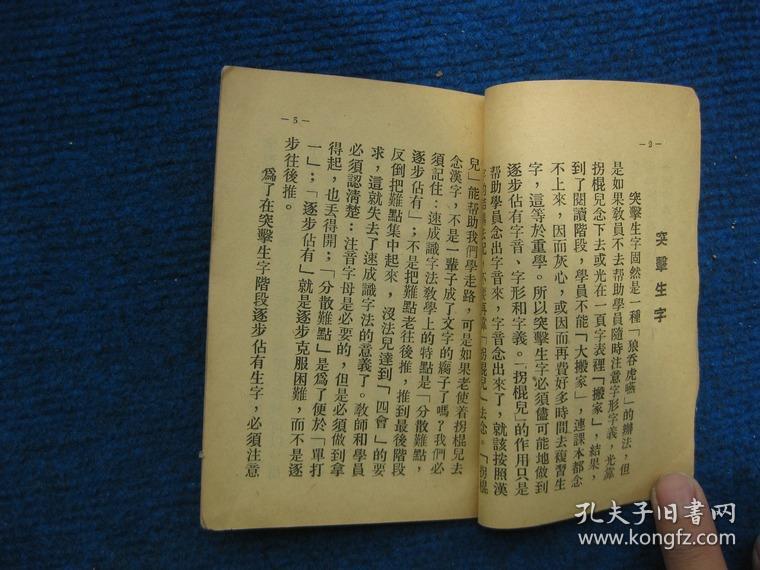 — 2 —
突擊生字
突擊生字固然是一種「狼吞虎嚥」的辦法，但
是如果教員不去帮助學員隨時注意字形字義，光靠
拐棍兒念下去或光在一頁字表裡「搬家」，結果，
到了閱讀階段，學員不能「大搬家」，連課本都念
不上來，因而灰心，或因而再費好多時間去複習生
字，這等於重學。所以突擊生字必須儘可能地做到
逐步佔有字音、字形和字義。「拐棍兒」的作用只是
帮助學員念出字音來，字音念出了，就該按照漢
去念。「拐棍
— 3 —
兒」能帮助我們學走路，可是如果老使着拐棍兒去
念漢字，不是一輩子成了文字的瘸子了嗎？我們必
須記住：速成識字法教學上的特點是「分散難點，
逐步佔有」；不是把難點老往後推，推到最後階段
反倒把難點集中起來，沒法兒達到「四會」的要
求，這就失去了速成識字法的意義了。教師和學員
必須認清楚：注音字母是必要的，但是必須做到拿
得起，也丢得開；「分散難點」是爲了便於「單打
一」；「逐步佔有」就是逐步克服困難，而不是逐
步往後推。
爲了在突擊生字階段逐步佔有生字，必須注意
孔夫子旧书网
www.kongfz.com